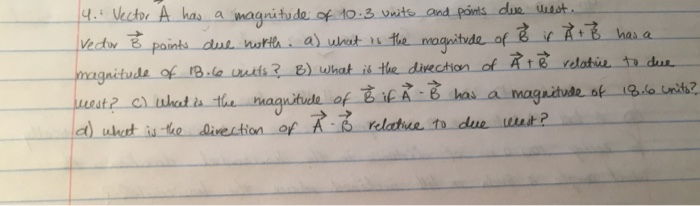 4.: Vector A has a magnitude of 10.3 units and points due west.
Vector B points due north. a) what is the magnitude of B if A+B has a
magnitude of 18.6 units? B) what is the direction of A+B relative to due
west? c) what is the magnitude of B if A-B has a magnitude of 18.6 units?
d) what is the direction of A-B relative to due west?